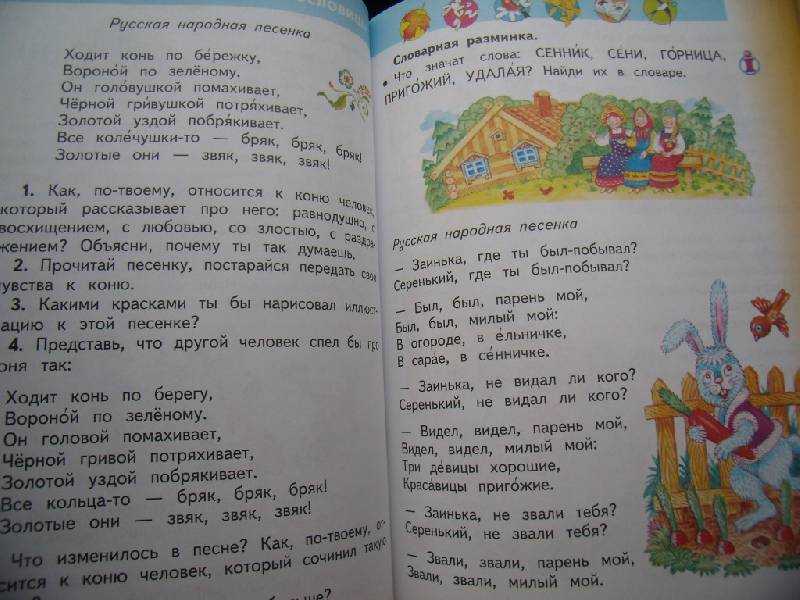 Русская народная песенка
Ходит конь по бе́режку,
Вороно́й по зелёному.
Он голо́вушкой помахивает,
Чёрной гри́вушкой потря́хивает,
Золотой уздой побря́кивает.
Все коле́чушки-то — бряк, бряк, бряк!
Золотые они — звяк, звяк, звяк!
1. Как, по-твоему, относится к коню человек,
который рассказывает про него: равнодушно, с
восхищением, с любовью, со злостью, с
жением? Объясни, почему ты так думаешь.
2. Прочитай песенку, постарайся передать
чувства к коню.
3. Какими красками ты бы нарисовал
цию к этой песенке?
4. Представь, что другой человек спел бы
коня так:
Ходит конь по берегу,
Вороно́й по зелёному.
Он головой помахивает,
Чёрной гривой потряхивает,
Золотой уздой побрякивает.
Все кольца-то — бряк, бряк, бряк!
Золотые они — звяк, звяк, звяк!
Что изменилось в песне? Как, по-твоему,
сится к коню человек, который сочинил такую
Словарная разминка.
• Что значат слова: СЕННИ́К, СЕ́НИ, ГО́РНИЦА,
ПРИГО́ЖИЙ, УДАЛА́Я? Найди их в словаре.
Русская народная песенка
— Заинька, где ты был-побывал?
Серенький, где ты был-побывал?
— Был, был, парень мой,
Был, был, милый мой:
В огороде, в е́льничке,
В сарае, в се́нничке.
— Заинька, не видал ли кого?
Серенький, не видал ли кого?
— Видел, видел, парень мой,
Видел, видел, милый мой:
Три де́вицы хорошие,
Краса́вицы приго́жие.
— Заинька, не звали тебя?
Серенький, не звали тебя?
— Звали, звали, парень мой,
Звали, звали, милый мой.